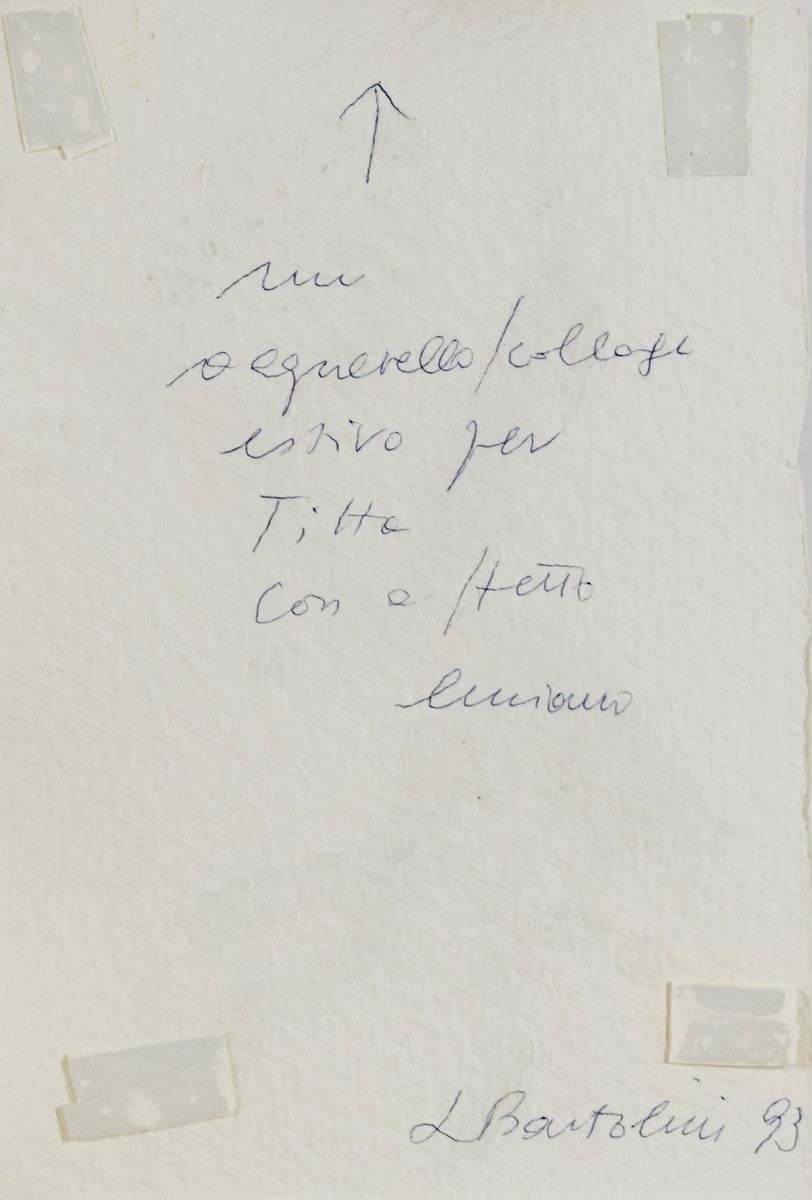 un
acquerello/collage
estivo per
Titta
con affetto
Luciano
L Bartolini 93